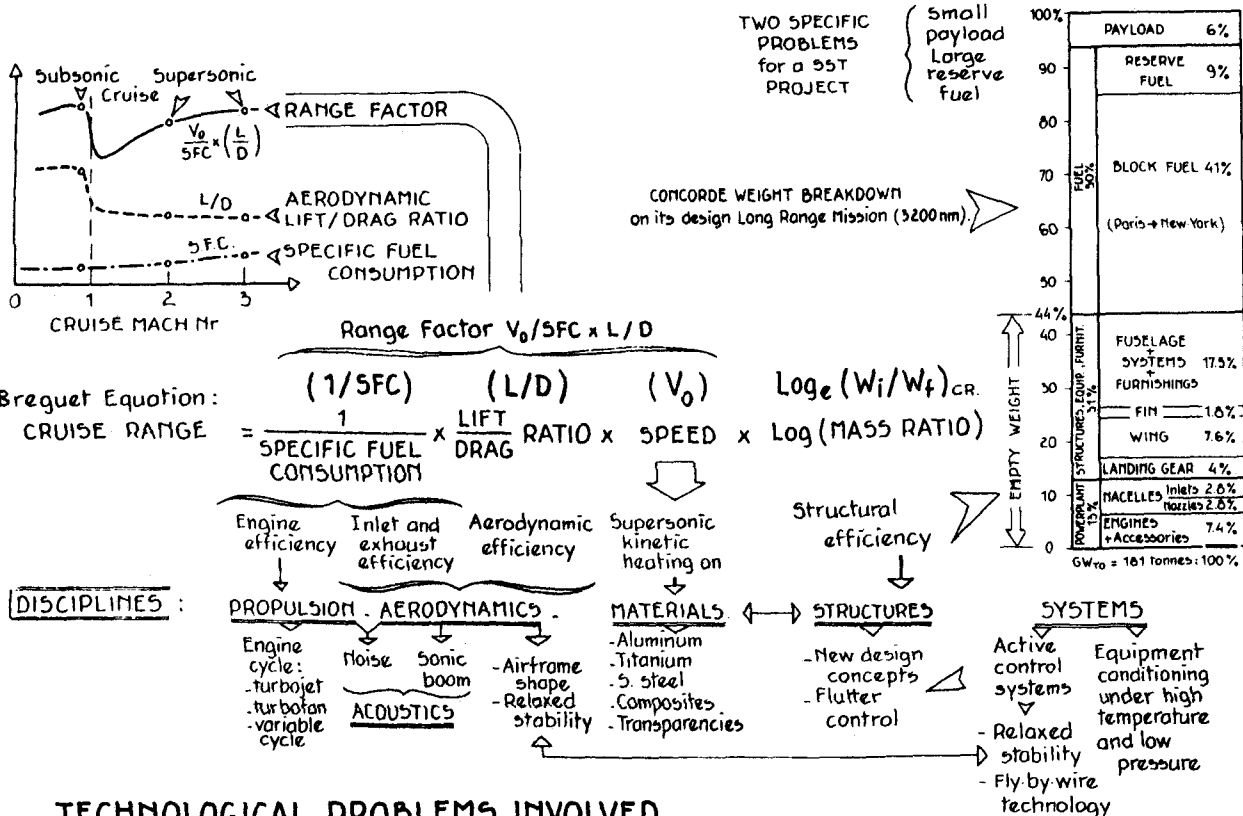 TWO SPECIFIC
PROBLEMS
for a SST
PROJECT
small
payload
Large
reserve
fuel
Subsonic Supersonic
Cruise
RANGE FACTOR
V₀/SFC × (L/D)
L/D
AERODYNAMIC
LIFT/DRAG RATIO
S.F.C.
SPECIFIC FUEL
CONSUMPTION
0 1 2 3
CRUISE MACH Nr
CONCORDE WEIGHT BREAKDOWN
on its design Long Range Mission (3200nm).
100%
90
80
70
60
50
44%
40
30
20
10
0
PAYLOAD 6%
RESERVE
FUEL 9%
FUEL
50%
BLOCK FUEL 41%
(Paris→New-York)
EMPTY WEIGHT
STRUCTURES, EQUIP., FURNIT.
31%
FUSELAGE
+
SYSTEMS 17.5%
+
FURNISHINGS
FIN 1.8%
WING 7.6%
LANDING GEAR 4%
POWERPLANT
13%
NACELLES Inlets 2.8%
Nozzles 2.8%
ENGINES 7.4%
+Accessories
GW_TO = 181 tonnes: 100%
Range Factor V₀/SFC × L/D
(1/SFC) (L/D) (V₀) Logₑ (Wi/Wf)CR.
Breguet Equation:
CRUISE RANGE = 1/SPECIFIC FUEL CONSUMPTION × LIFT/DRAG RATIO × SPEED × Log (MASS RATIO)
Engine
efficiency
Inlet and
exhaust
efficiency
Aerodynamic
efficiency
Supersonic
kinetic
heating on
Structural
efficiency
DISCIPLINES :
PROPULSION - AERODYNAMICS -
MATERIALS
STRUCTURES
SYSTEMS
Engine
cycle:
-turbojet
-turbofan
-variable
cycle
Noise
Sonic
boom
ACOUSTICS
-Airframe
shape
-Relaxed
stability
-Aluminum
-Titanium
-S. steel
-Composites
-Transparencies
-New design
concepts
-Flutter
control
Active
control
systems
- Relaxed
stability
- Fly-by-wire
technology
Equipment
conditioning
under high
temperature
and low
pressure
TECHNOLOGICAL PROBLEMS INVOLVED